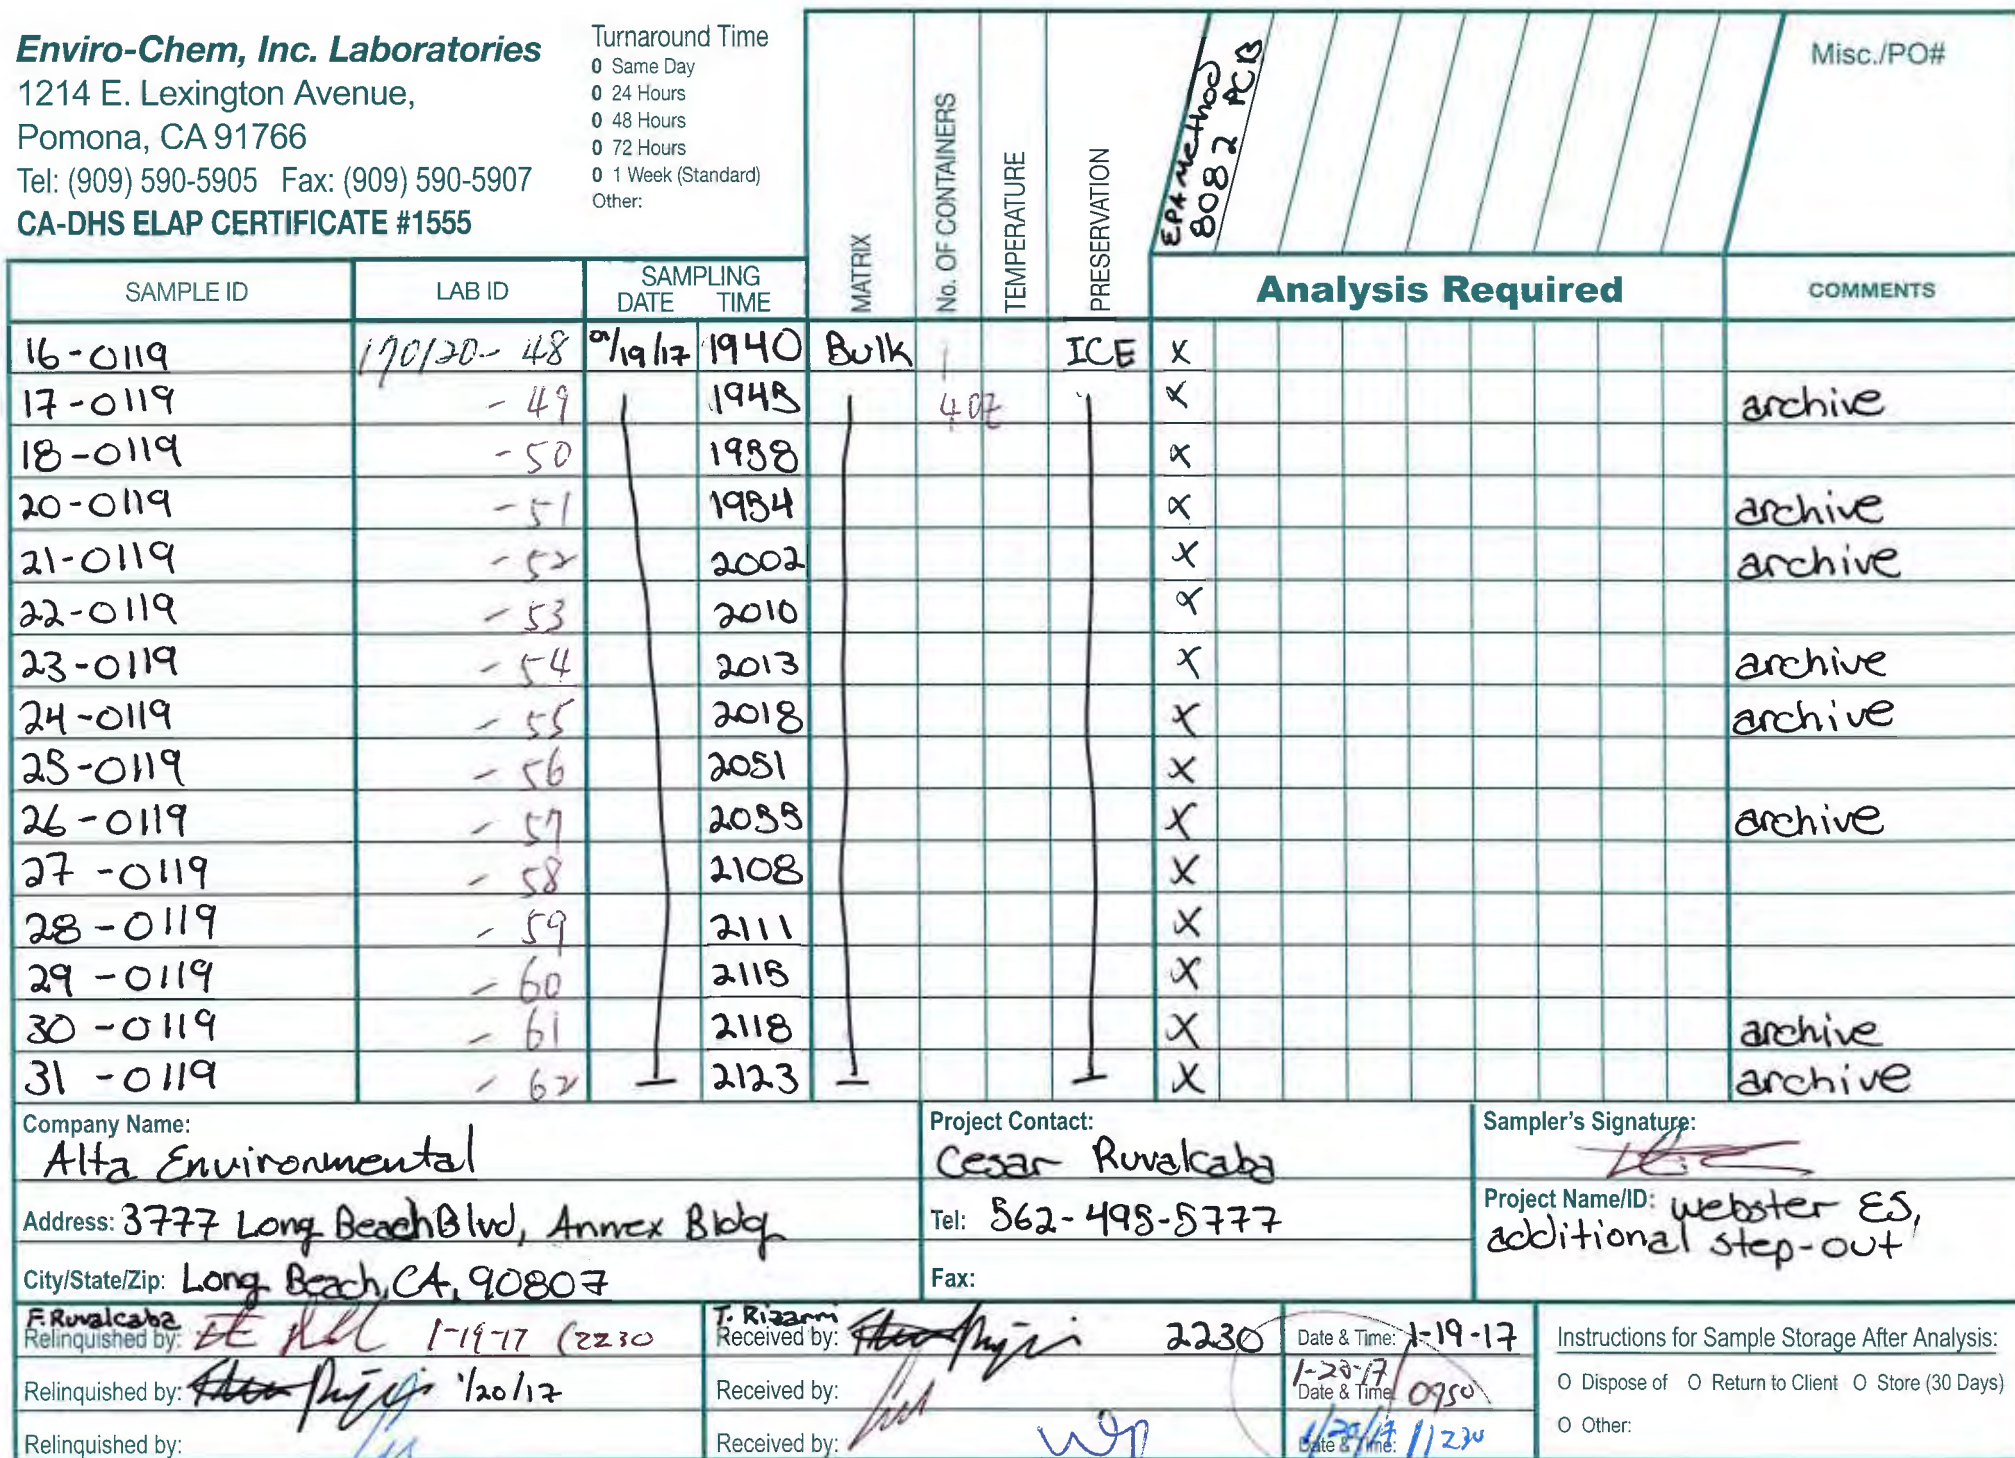 Enviro-Chem, Inc. Laboratories
1214 E. Lexington Avenue,
Pomona, CA 91766
Tel: (909) 590-5905 Fax: (909) 590-5907
CA-DHS ELAP CERTIFICATE #1555
Turnaround Time
0 Same Day
0 24 Hours
0 48 Hours
0 72 Hours
0 1 Week (Standard)
Other:
MATRIX
No. OF CONTAINERS
TEMPERATURE
PRESERVATION
EPA Method
8082 PCB
Misc./PO#
SAMPLE ID LAB ID SAMPLING DATE TIME Analysis Required COMMENTS
16-0119 170120-48 01/19/17 1940 Bulk ICE X
17-0119 -49 1945 4oz X archive
18-0119 -50 1958 X
20-0119 -51 1954 X archive
21-0119 -52 2002 X archive
22-0119 -53 2010 X
23-0119 -54 2013 X archive
24-0119 -55 2018 X archive
25-0119 -56 2051 X
26-0119 -57 2055 X archive
27-0119 -58 2108 X
28-0119 -59 2111 X
29-0119 -60 2115 X
30-0119 -61 2118 X archive
31-0119 -62 2123 X archive
Company Name:
Alta Environmental
Address: 3777 Long Beach Blvd, Annex Bldg
City/State/Zip: Long Beach, CA, 90807
Project Contact:
Cesar Ruvalcaba
Tel: 562-495-5777
Fax:
Sampler's Signature:
Project Name/ID: Webster ES,
additional step-out
F. Ruvalcaba
Relinquished by: 1-19-17 2230
T. Rizanni
Received by: 2230 Date & Time: 1-19-17
Relinquished by: 1/20/17
Received by: Date & Time: 1-20-17 0950
Relinquished by:
Received by: Date & Time: 1/20/17 1230
Instructions for Sample Storage After Analysis:
O Dispose of O Return to Client O Store (30 Days)
O Other: